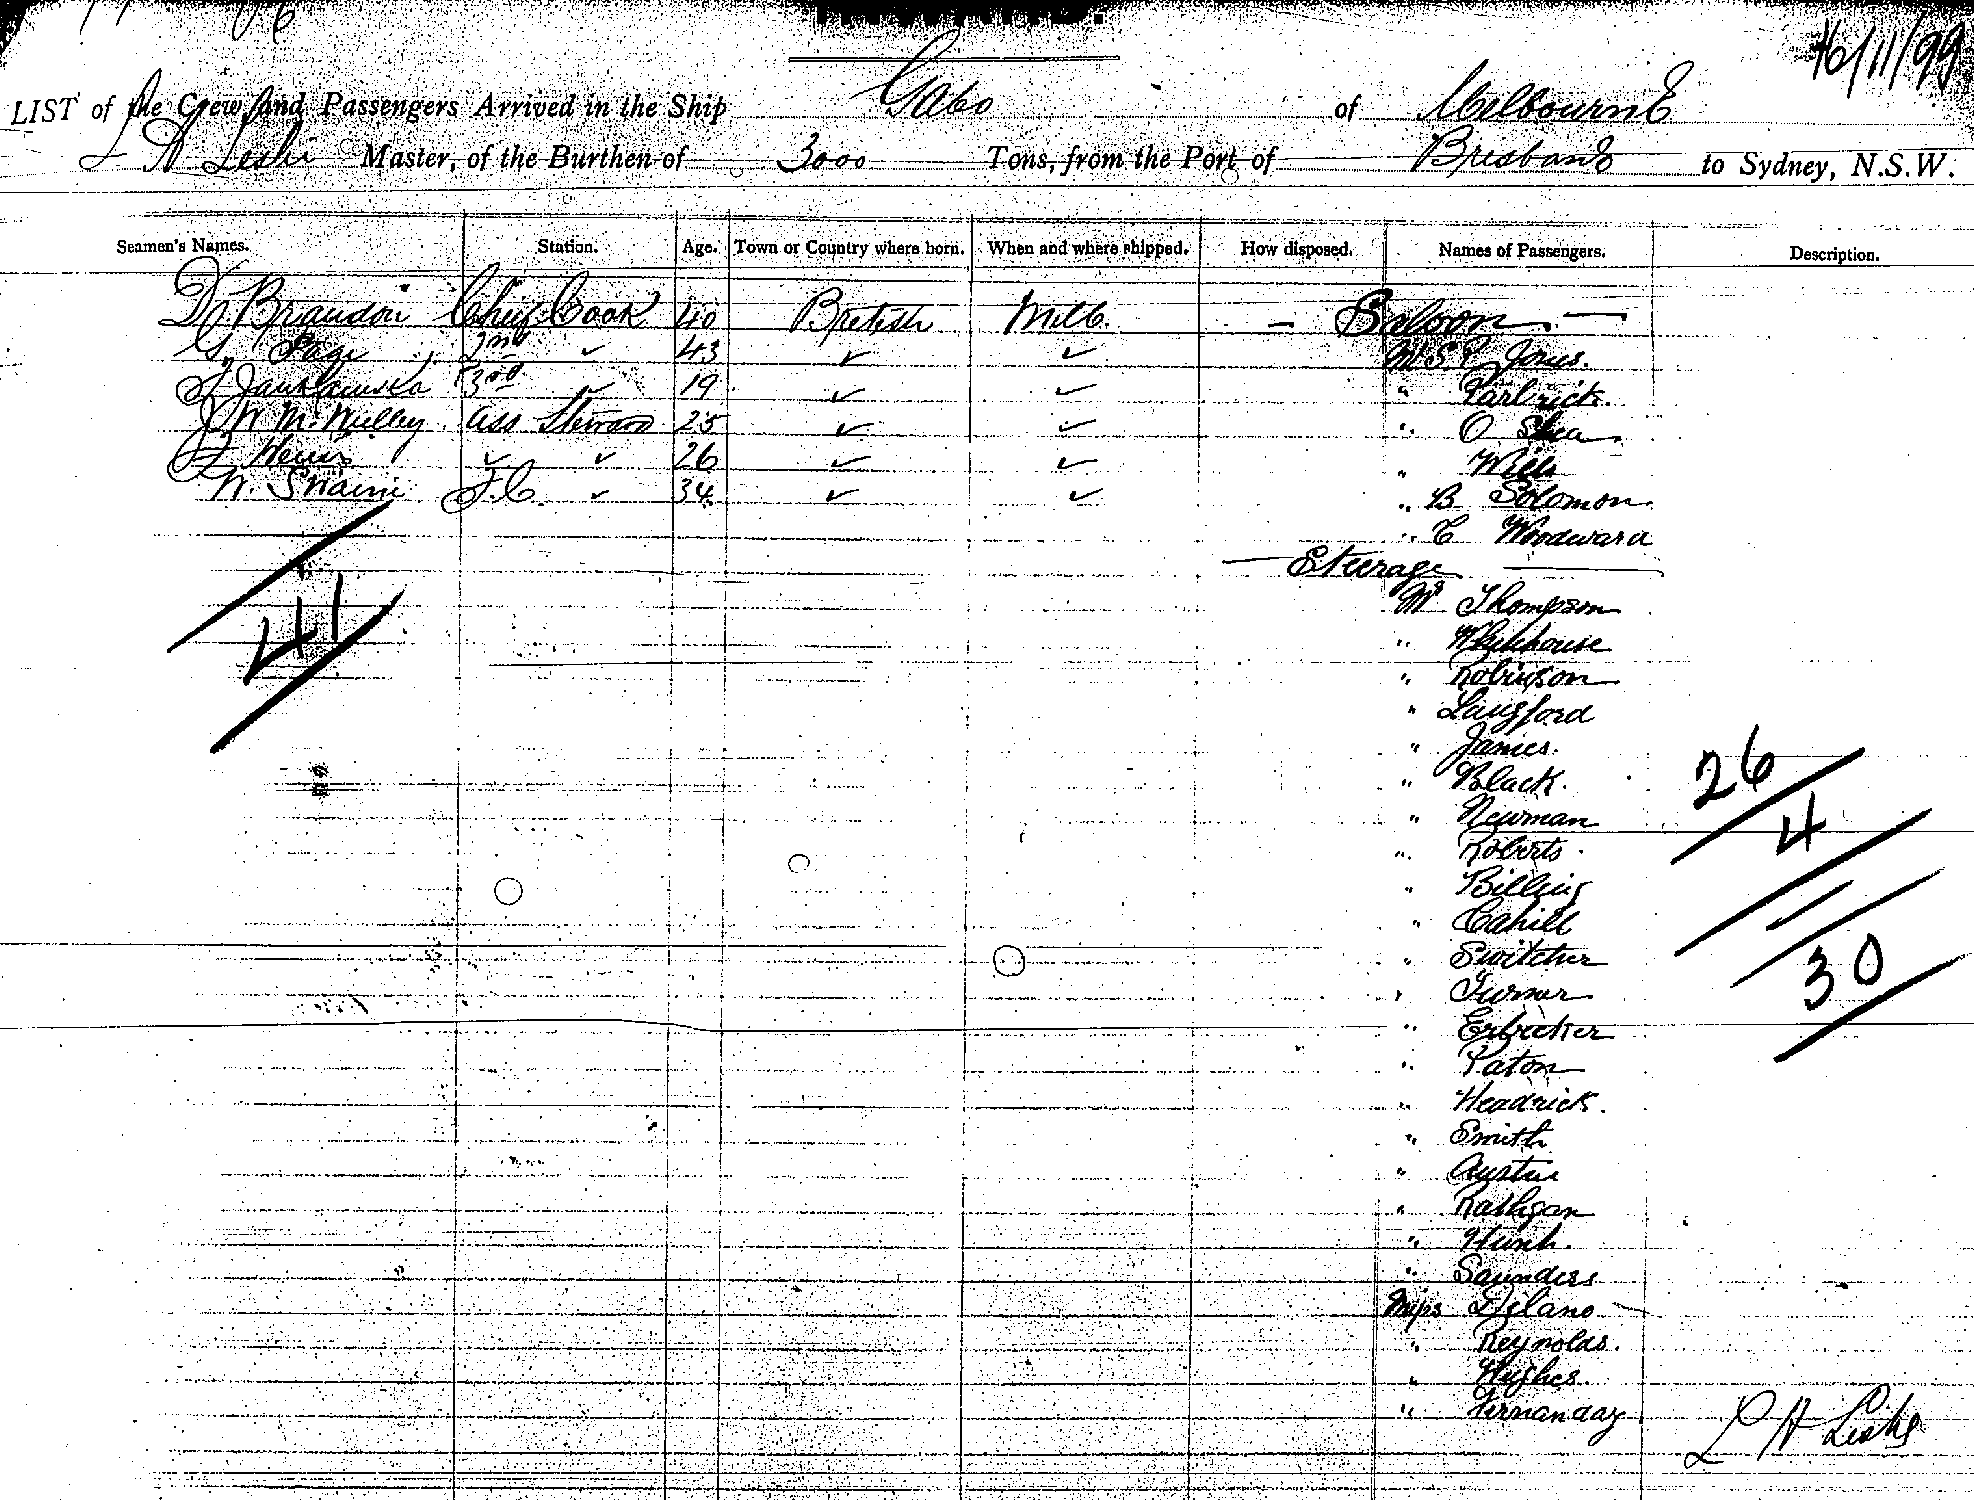 INWARDS.
16/11/99
LIST of the Crew and Passengers Arrived in the Ship Gabo of Melbourne
L A Leslie Master, of the Burthen of 3000 Tons, from the Port of Brisbane to Sydney, N.S.W.
Seamen's Names. Station. Age. Town or Country where born. When and where shipped. How disposed. Names of Passengers. Description.
D Brandon Chief Cook 40 British Melb. — Saloon. —
Page 2nd ✓ 43 ✓ ✓ Mr S. P. Jones.
3rd ✓ 19 ✓ ✓ "
W McNulley Ass Steward 25 ✓ ✓ " O Shea
✓ ✓ 26 ✓ ✓ " Wills
W. F.C. ✓ 34 ✓ ✓ " B Solomon
" C Woodward
— Steerage —
41
Mr Thompson
" Whitehouse
" Robinson
" Langford
" James.
" Black.
" Newman
" Roberts
" Billing
" Cahill
" Switcher
" Turner
" Erbecker
" Paton
" Headrick.
" Smith
" Austin
" Rathgan
" Hunt.
" Saunders
Miss Delano
" Reynolds.
" Hughes.
" Fernanday
26
4
30
L A Leslie